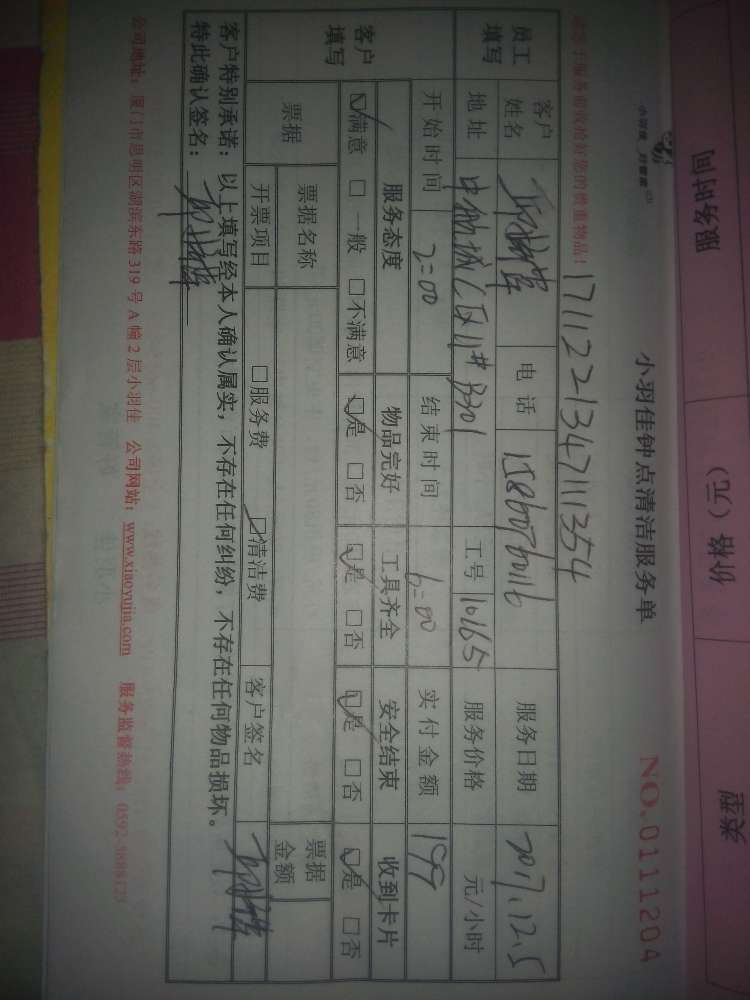 服务时间 价格（元） 类型
小羽佳
小羽佳钟点清洁服务单 NO.0111204
服务前请收拾好您的贵重物品！
1711221347111354
员工填写 客户姓名 电话 15860760116 服务日期 2017.12.5
地址 中航城C区11#B301 工号 10165 服务价格 元/小时
客户填写 开始时间 2:00 结束时间 6:00 实付金额
服务态度 物品完好 工具齐全 安全结束 收到卡片
☑满意 □一般 □不满意 ☑是 □否 ☑是 □否 ☑是 □否 ☑是 □否
票据 票据名称 票据金额
开票项目 □服务费 ☑清洁费 客户签名
客户特别承诺：以上填写经本人确认属实，不存在任何纠纷，不存在任何物品损坏。
特此确认签名：
公司地址：厦门市思明区湖滨东路319号A幢2层小羽佳 公司网站：www.xiaoyujia.com 服务监督热线：